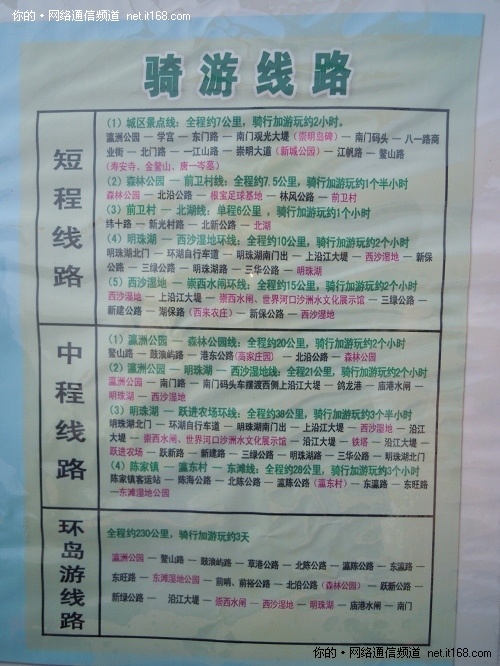 你的·网络通信频道 net.it168.com
骑游线路
短程线路
(1)城区景点线:全程约7公里,骑行加游玩约2小时。
瀛洲公园 — 学宫 — 东门路 — 南门观光大堤(崇明岛碑)— 南门码头 — 八一路商
业街 — 北门路 — 一江山路 — 崇明大道(新城公园)— 江帆路 — 鳌山路
(寿安寺、金鳌山、唐一岑墓)
(2)森林公园 — 前卫村线:全程约7.5公里,骑行加游玩约1个半小时
森林公园 — 北沿公路 — 根宝足球基地 — 林风公路 — 前卫村
(3)前卫村 — 北湖线:单程6公里,骑行加游玩约1小时
纬十路 — 新光村路 — 北新公路 — 北湖
(4)明珠湖 — 西沙湿地环线:全程约10公里,骑行加游玩约2个小时
明珠湖北门 — 环湖自行车道 — 明珠湖南门出 — 上沿江大堤 — 西沙湿地 — 新保
公路 — 三绿公路 — 明珠湖路 — 三华公路 — 明珠湖
(5)西沙湿地 — 崇西水闸环线:全程约15公里,骑行加游玩约2个小时
西沙湿地 — 上沿江大堤 — 崇西水闸、世界河口沙洲水文化展示馆 — 三绿公路 —
新建公路 — 湖保路(西来农庄)— 新保公路 — 西沙湿地
中程线路
(1)瀛洲公园 — 森林公园线:全程约20公里,骑行加游玩约2个小时
鳌山路 — 鼓浪屿路 — 港东公路(高家庄园)— 北沿公路 — 森林公园
(2)瀛洲公园 — 明珠湖 — 西沙湿地线:全程21公里,骑行加游玩约2个小时
瀛洲公园 — 南门路 — 南门码头车摆渡西侧上沿江大堤 — 鸽龙港 — 庙港水闸 —
明珠湖 — 西沙湿地
(3)明珠湖 — 跃进农场环线:全程约38公里,骑行加游玩约3个半小时
明珠湖北门 — 环湖自行车道 — 明珠湖南门出 — 上沿江大堤 — 西沙湿地 — 沿江
大堤 — 崇西水闸、世界河口沙洲水文化展示馆 — 沿江大堤 — 铁塔 — 沿江大堤 —
跃进农场 — 跃新路 — 新建路 — 三绿公路 — 明珠湖路 — 三华公路 — 明珠湖北门
(4)陈家镇 — 瀛东村 — 东滩线:全程约28公里,骑行加游玩约3个小时
陈家镇客运站 — 陈海公路 — 北陈公路 — 瀛陈公路(瀛东村)— 东瀛路 — 东旺路
—东滩湿地公园
环岛游线路
全程约230公里,骑行加游玩约3天
瀛洲公园 — 鳌山路 — 鼓浪屿路 — 草港公路 — 北陈公路 — 瀛陈公路 — 东瀛路 —
东旺路 — 东滩湿地公园 — 前哨、前裕公路 — 北沿公路(森林公园)— 跃新公路 —
新绿公路 — 沿江大堤 — 崇西水闸 — 西沙湿地 — 明珠湖 — 庙港水闸 — 南门
你的·网络通信频道 net.it168.com